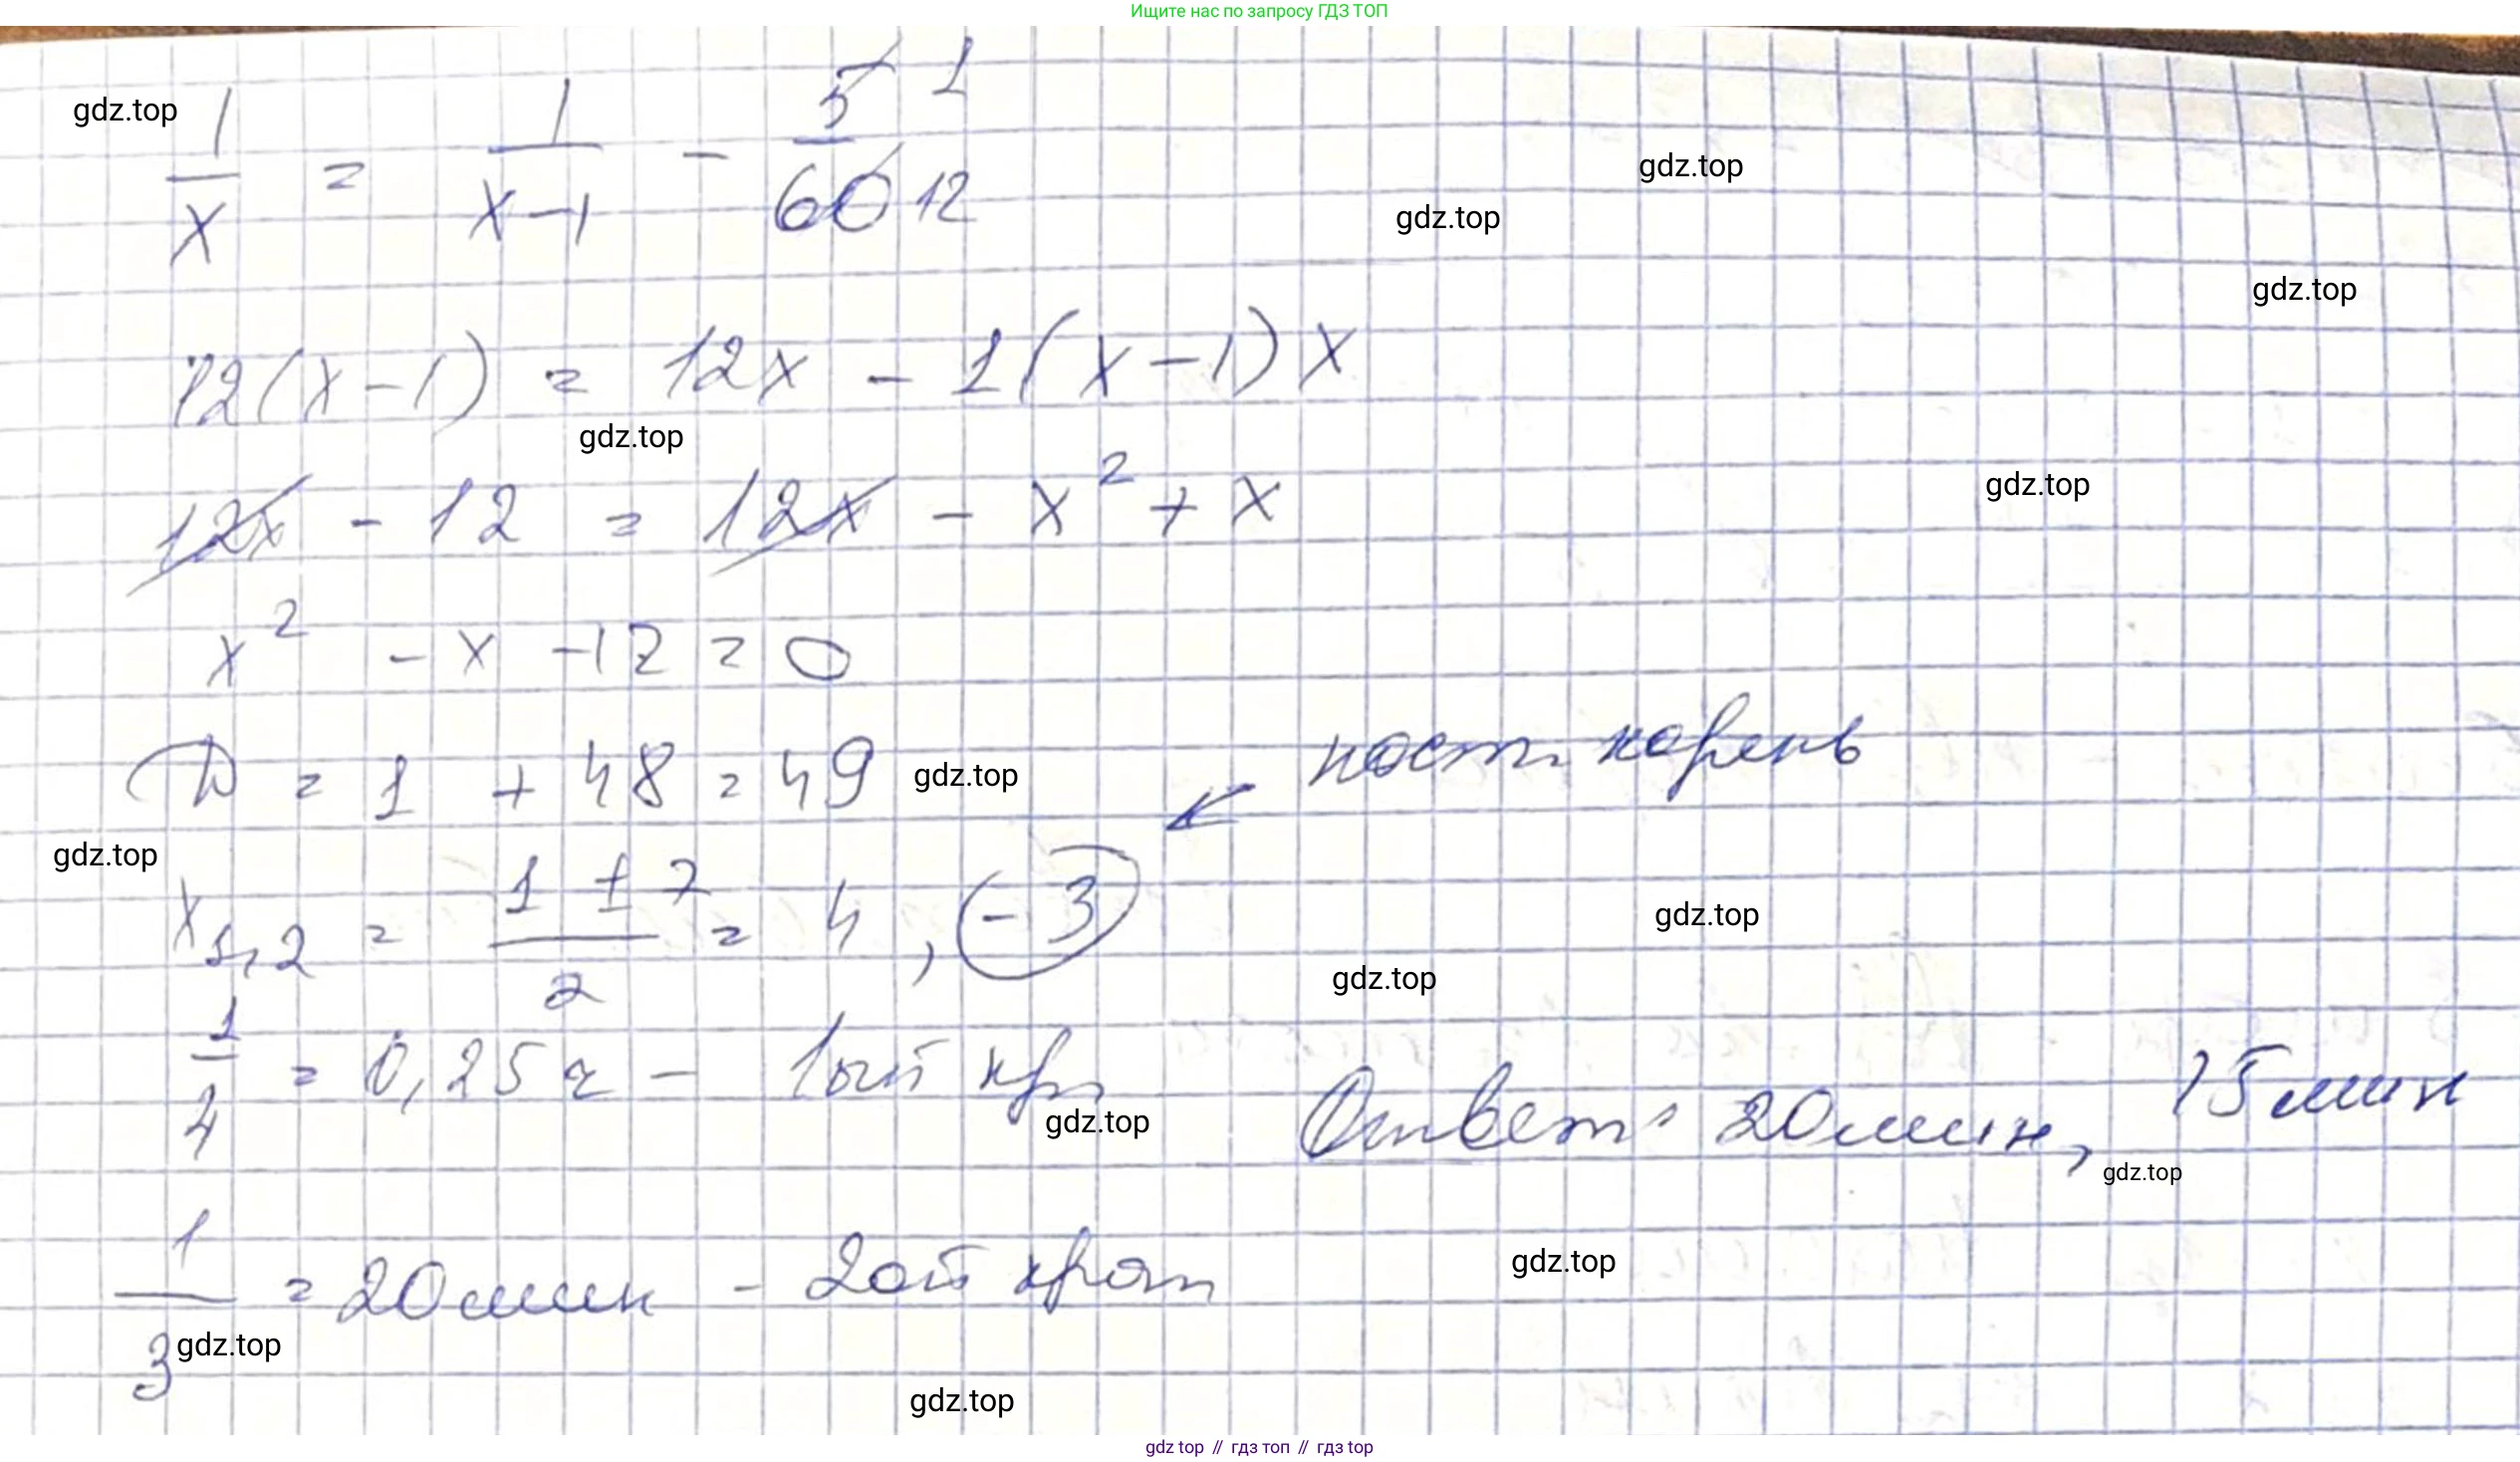 Ищите нас по запросу ГДЗ ТОП
gdz.top
1/x = 1/(x-1) - 5/60 1/12
gdz.top
gdz.top
gdz.top
12(x-1) = 12x - 1(x-1)x
gdz.top
gdz.top
12x - 12 = 12x - x² + x
x² - x - 12 = 0
D = 1 + 48 = 49
gdz.top
пост. корень
gdz.top
x1,2 = (1 ± 7)/2 = 4, -3
gdz.top
gdz.top
1/4 = 0,25 ч - 1ый кр
gdz.top
Ответ: 20 мин, 15 мин
gdz.top
1/3 = 20 мин - 2ой кран
gdz.top
gdz.top
gdz.top
gdz top // гдз топ // гдз top